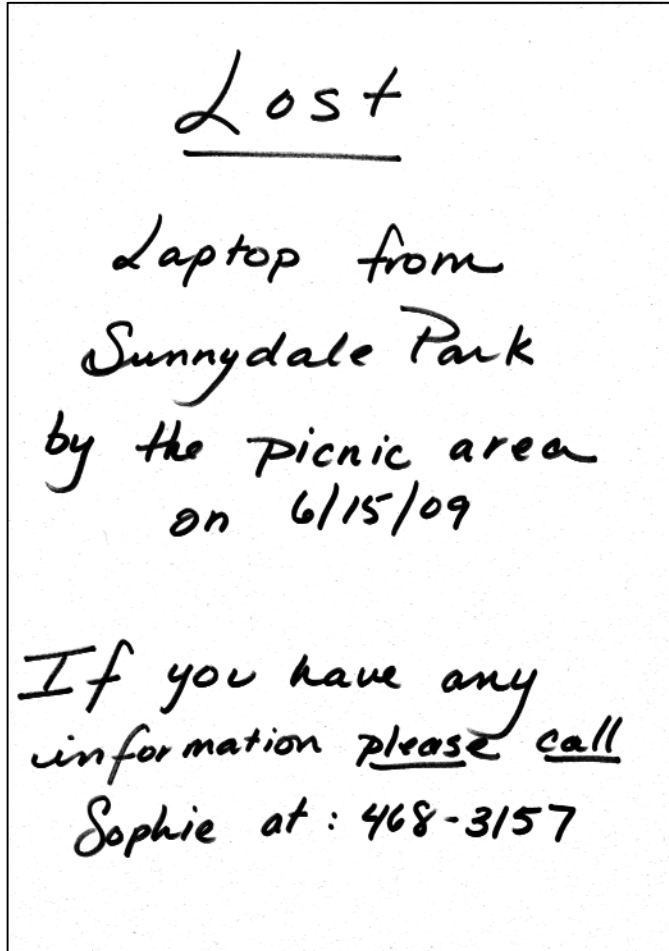 Lost
Laptop from
Sunnydale Park
by the picnic area
on 6/15/09
If you have any
information please call
Sophie at: 468-3157